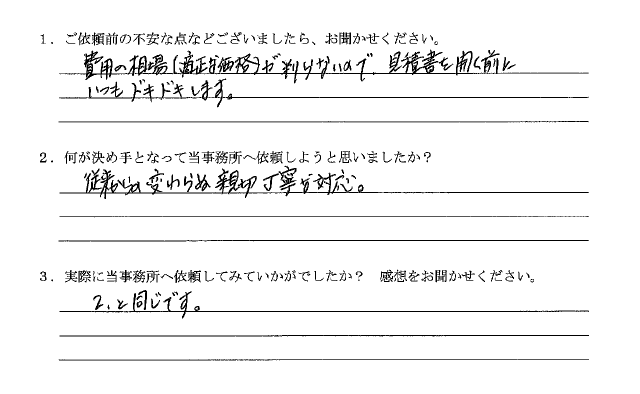 1．ご依頼前の不安な点などございましたら、お聞かせください。
費用の相場(適正な価格)が判らないので、見積書を開く前に
いつもドキドキします。
2．何が決め手となって当事務所へ依頼しようと思いましたか？
従来からの変わらぬ親切丁寧な対応。
3．実際に当事務所へ依頼してみていかがでしたか？　感想をお聞かせください。
2.と同じです。